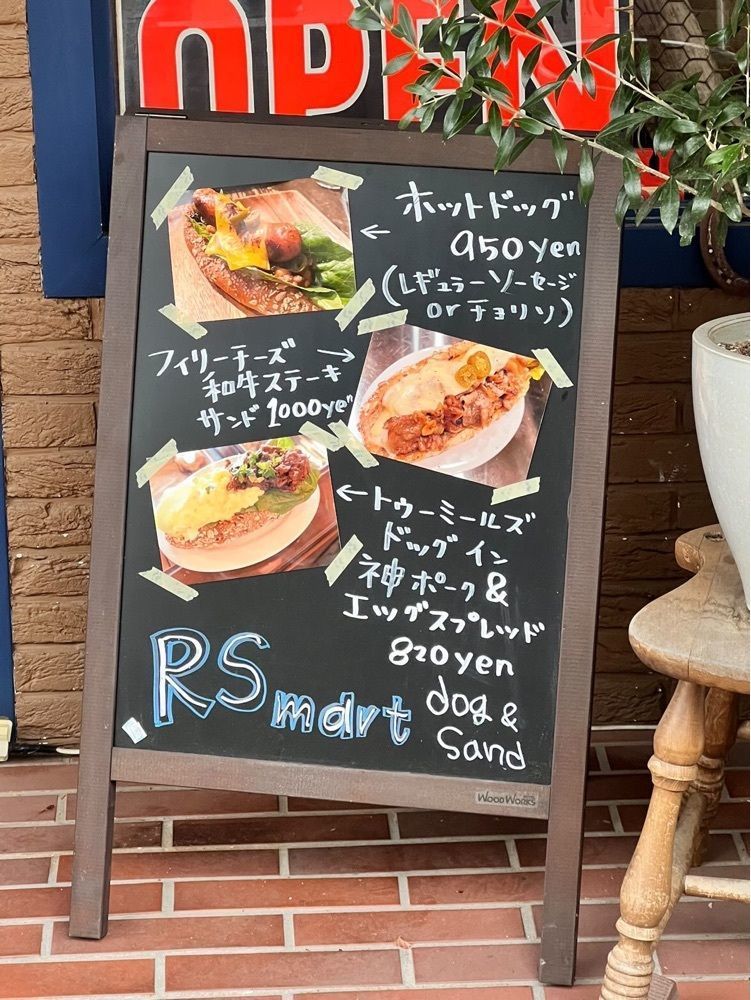 OPEN
ホットドッグ
950yen
(レギュラーソーセージ
orチョリソ)
フィリーチーズ
和牛ステーキ
サンド1000yen
トゥーミールズ
ドッグイン
神ポーク&
エッグスプレッド
820yen
RSmart
dog&
Sand
WOODWORKS